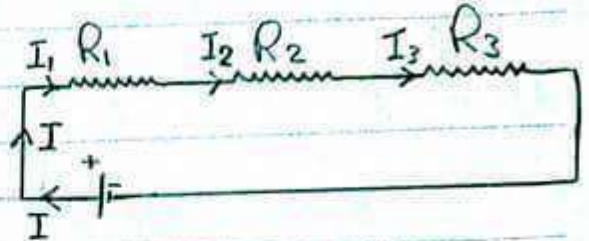 I₁ R₁ I₂ R₂ I₃ R₃
I
+ -
I